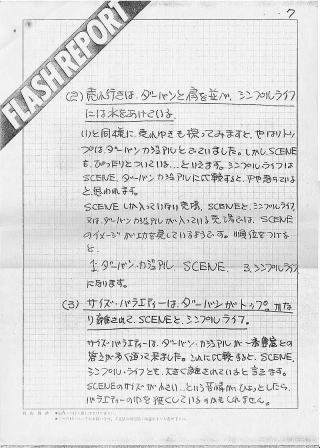 7
FLASH REPORT
(2) 売れ行きは、ダーバンと肩を並べ、シンプルライフ
には水をあけている。
(1)と同様に売れゆきも探ってみますと、やはりトッ
プはダーバンカジュアルとでていました。しかしSCENE
も、ぴったりとついている…といえます。シンプルライフは
SCENE、ダーバンカジュアルに比較すると、やや落ちている
と思われます。
SCENEしか入っていない売場、SCENEと、シンプルライ
フ又はダーバンカジュアルが入っている売場では、SCENE
のイメージが功を奏しているようです。順位をつけると
と、
1. ダーバン・カジュアル、SCENE、3. シンプルライフ
になります。
(3) サイズ・バラエティーは、ダーバンがトップ。かな
り離されて、SCENEと、シンプルライフ。
サイズ・バラエティーは、ダーバン・カジュアルが一番豊富との
答えが多く返って来ました。これに比較すると、SCENE、
シンプル・ライフとも、大きく離されていると言えます。
SCENEのサイズが
という苦情がひょっとしたら、
バラエティーの
のかもしれません。